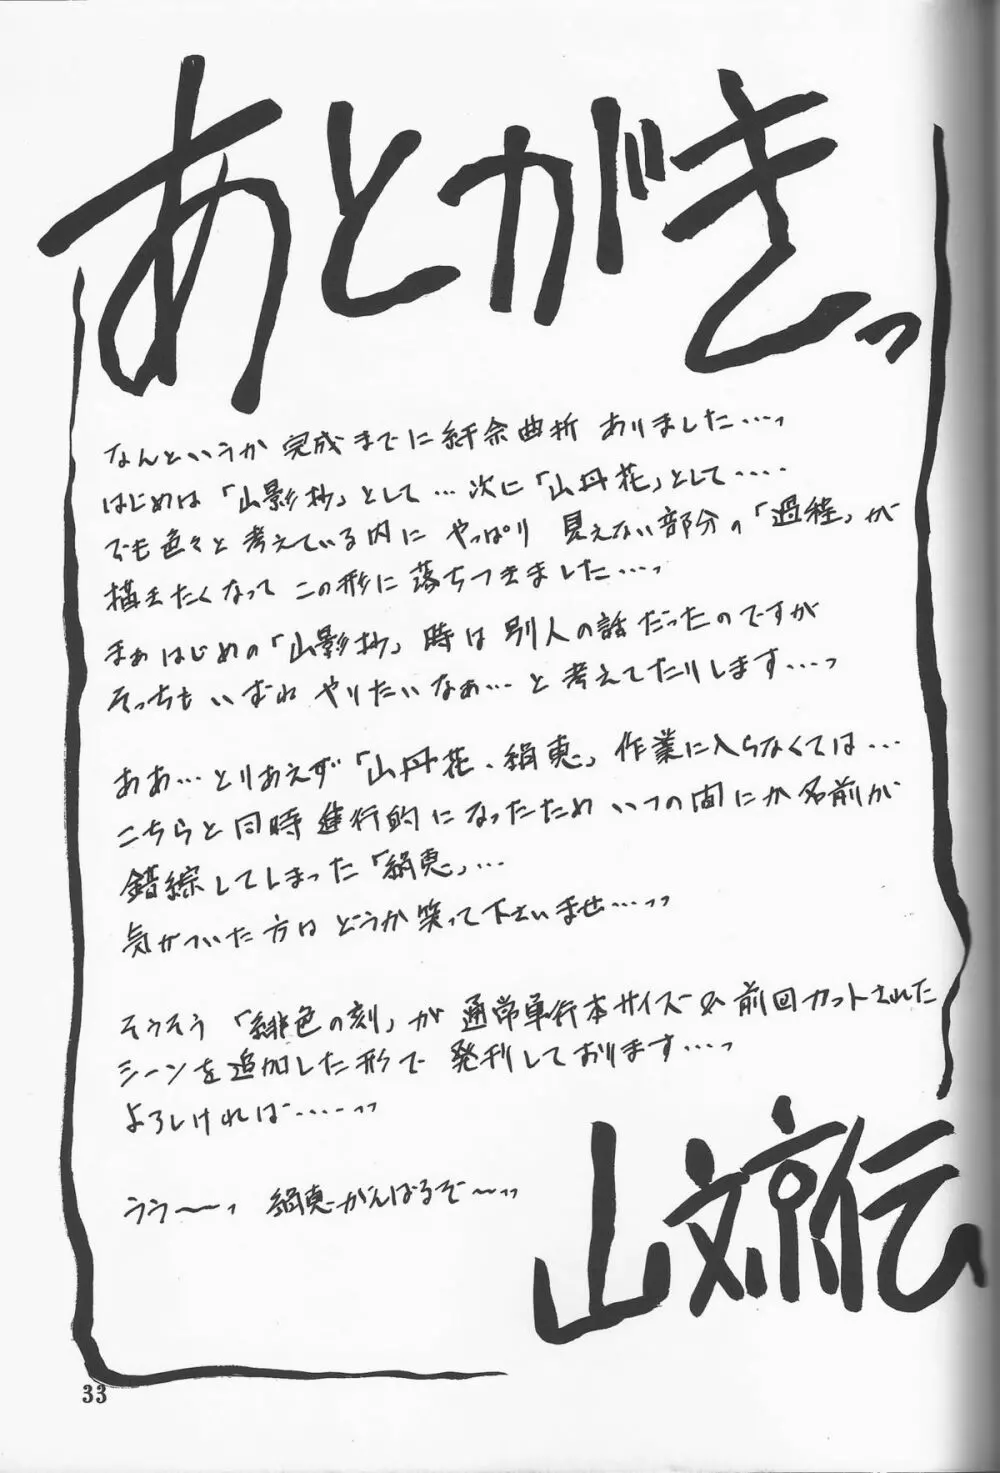 あとがきっ
なんというか 完成までに紆余曲折 ありました…っ
はじめは「山影抄」として…次に「山丹花」として‥‥
でも色々と考えている内に やっぱり 見えない部分の「過程」が
描きたくなって この形に落ちつきました…っ
まぁはじめの「山影抄」時は別人の話だったのですが
そっちもいずれ やりたいなぁ…と考えてたりします…っ
ああ…とりあえず「山丹花・絹恵」作業に入らなくては…
こちらと同時進行的になったため いつの間にか名前が
錯綜してしまった「絹恵」…
気がついた方は どうか笑って下さいませ…っっ
そうそう「緋色の刻」が 通常単行本サイズ& 前回カットされた
シーンを追加した形で 発刊しております…っ
よろしければ‥‥っっ
うう〜っ 絹恵がんばるぞ〜っっ
山文京伝
33